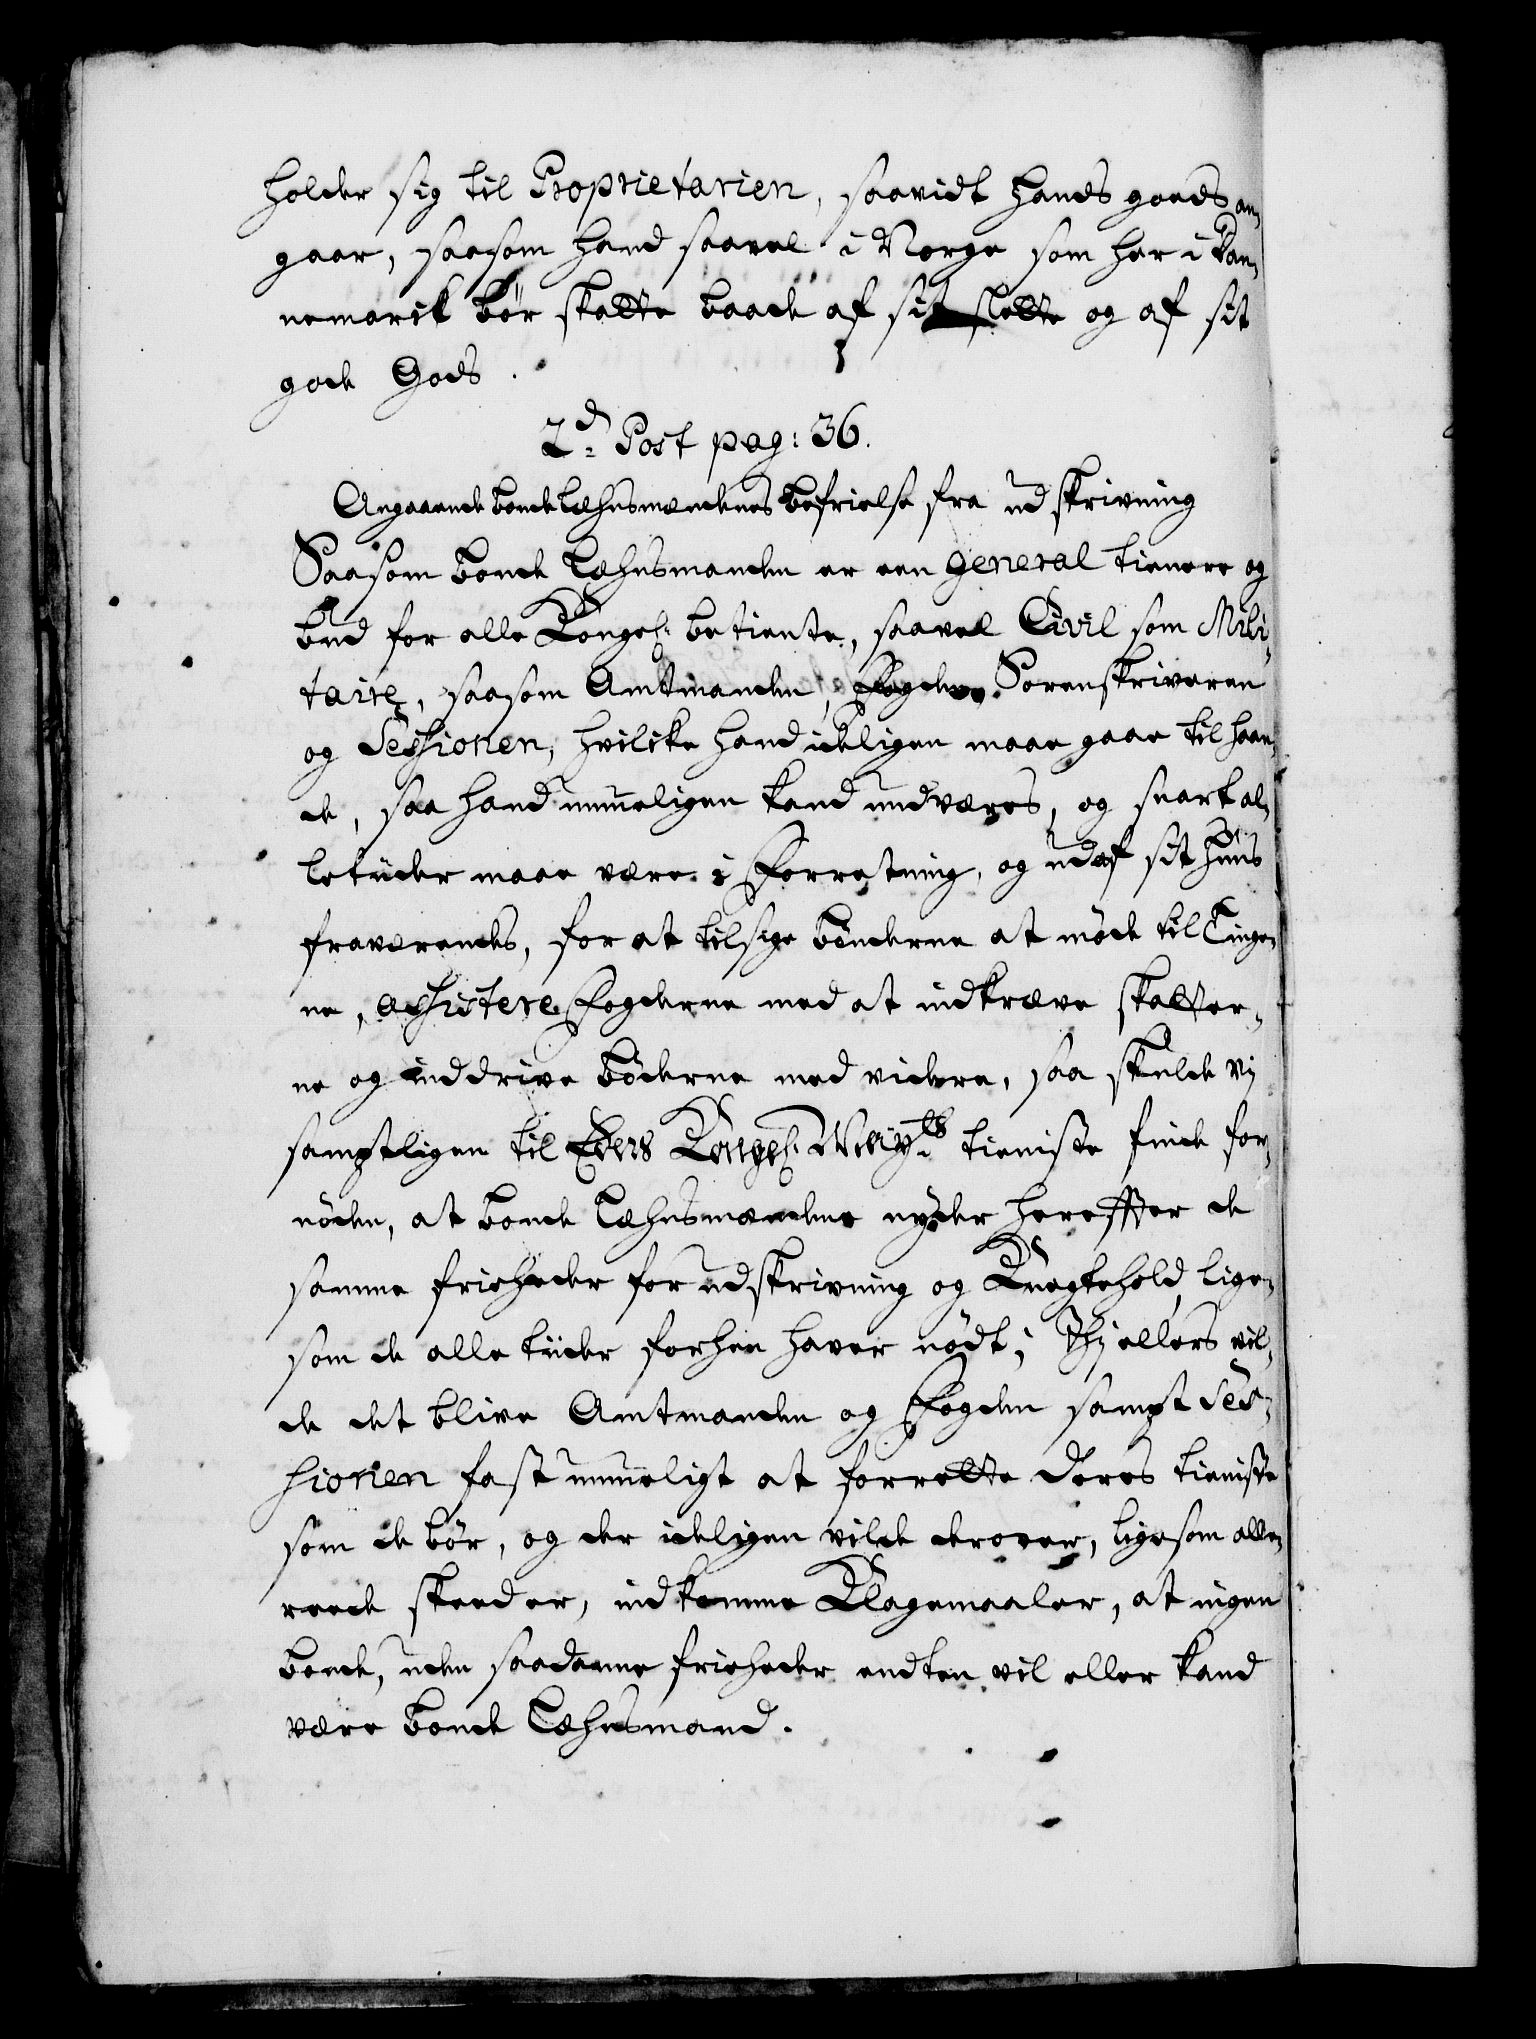 holder sig til Proprietarien, saavidt hands goeds an,
gaar, saasom hand saavel i Norge som her i Dan,
nemarck bør skatte baade af sit slette og af sit
gode Gods.
2d. Post pag: 36.
Angaaende bonde Læhnsmændenes befrielse fra udskrivning
Saasom bonde Læhnsmanden er een general tienere og
bud for alle Kongel: betiente, saavel Civil som Mili-
taire, saasom Amtmanden, Fogden, Sorenskriveren
og Sessionen, hvilcke hand ideligen maae gaae til haan,
de, saa hand umueligen kand undværes, og snart al,
letider maae være i Forretning, og udaf sit huus
fraværendes, for at tilsige bønderne at møde til Tinge,
ne, assistere Fogderne med at indkræve skatter,
ne og inddrive bøderne med videre, saa skulde vj
samptligen til Eders Kongel: Mayts tieniste finde for,
nøden, at bonde Læhnsmændene nyder hereffter de
samme friheheder for udskrivning og Knegtehold, lige,
som de alle tider forhen haver nødt; Thj ellers vil,
de det blive Amtmanden og Fogden sampt Ses-
sionen fast umueligt at forrette deres tieniste
som de bør, og der ideligen vilde derover, ligesom alle,
reede skeeder, indkomme Klagemaaler, at ingen
bonde, uden saadanne friheheder endten vil eller kand
være bonde Læhnsmand.